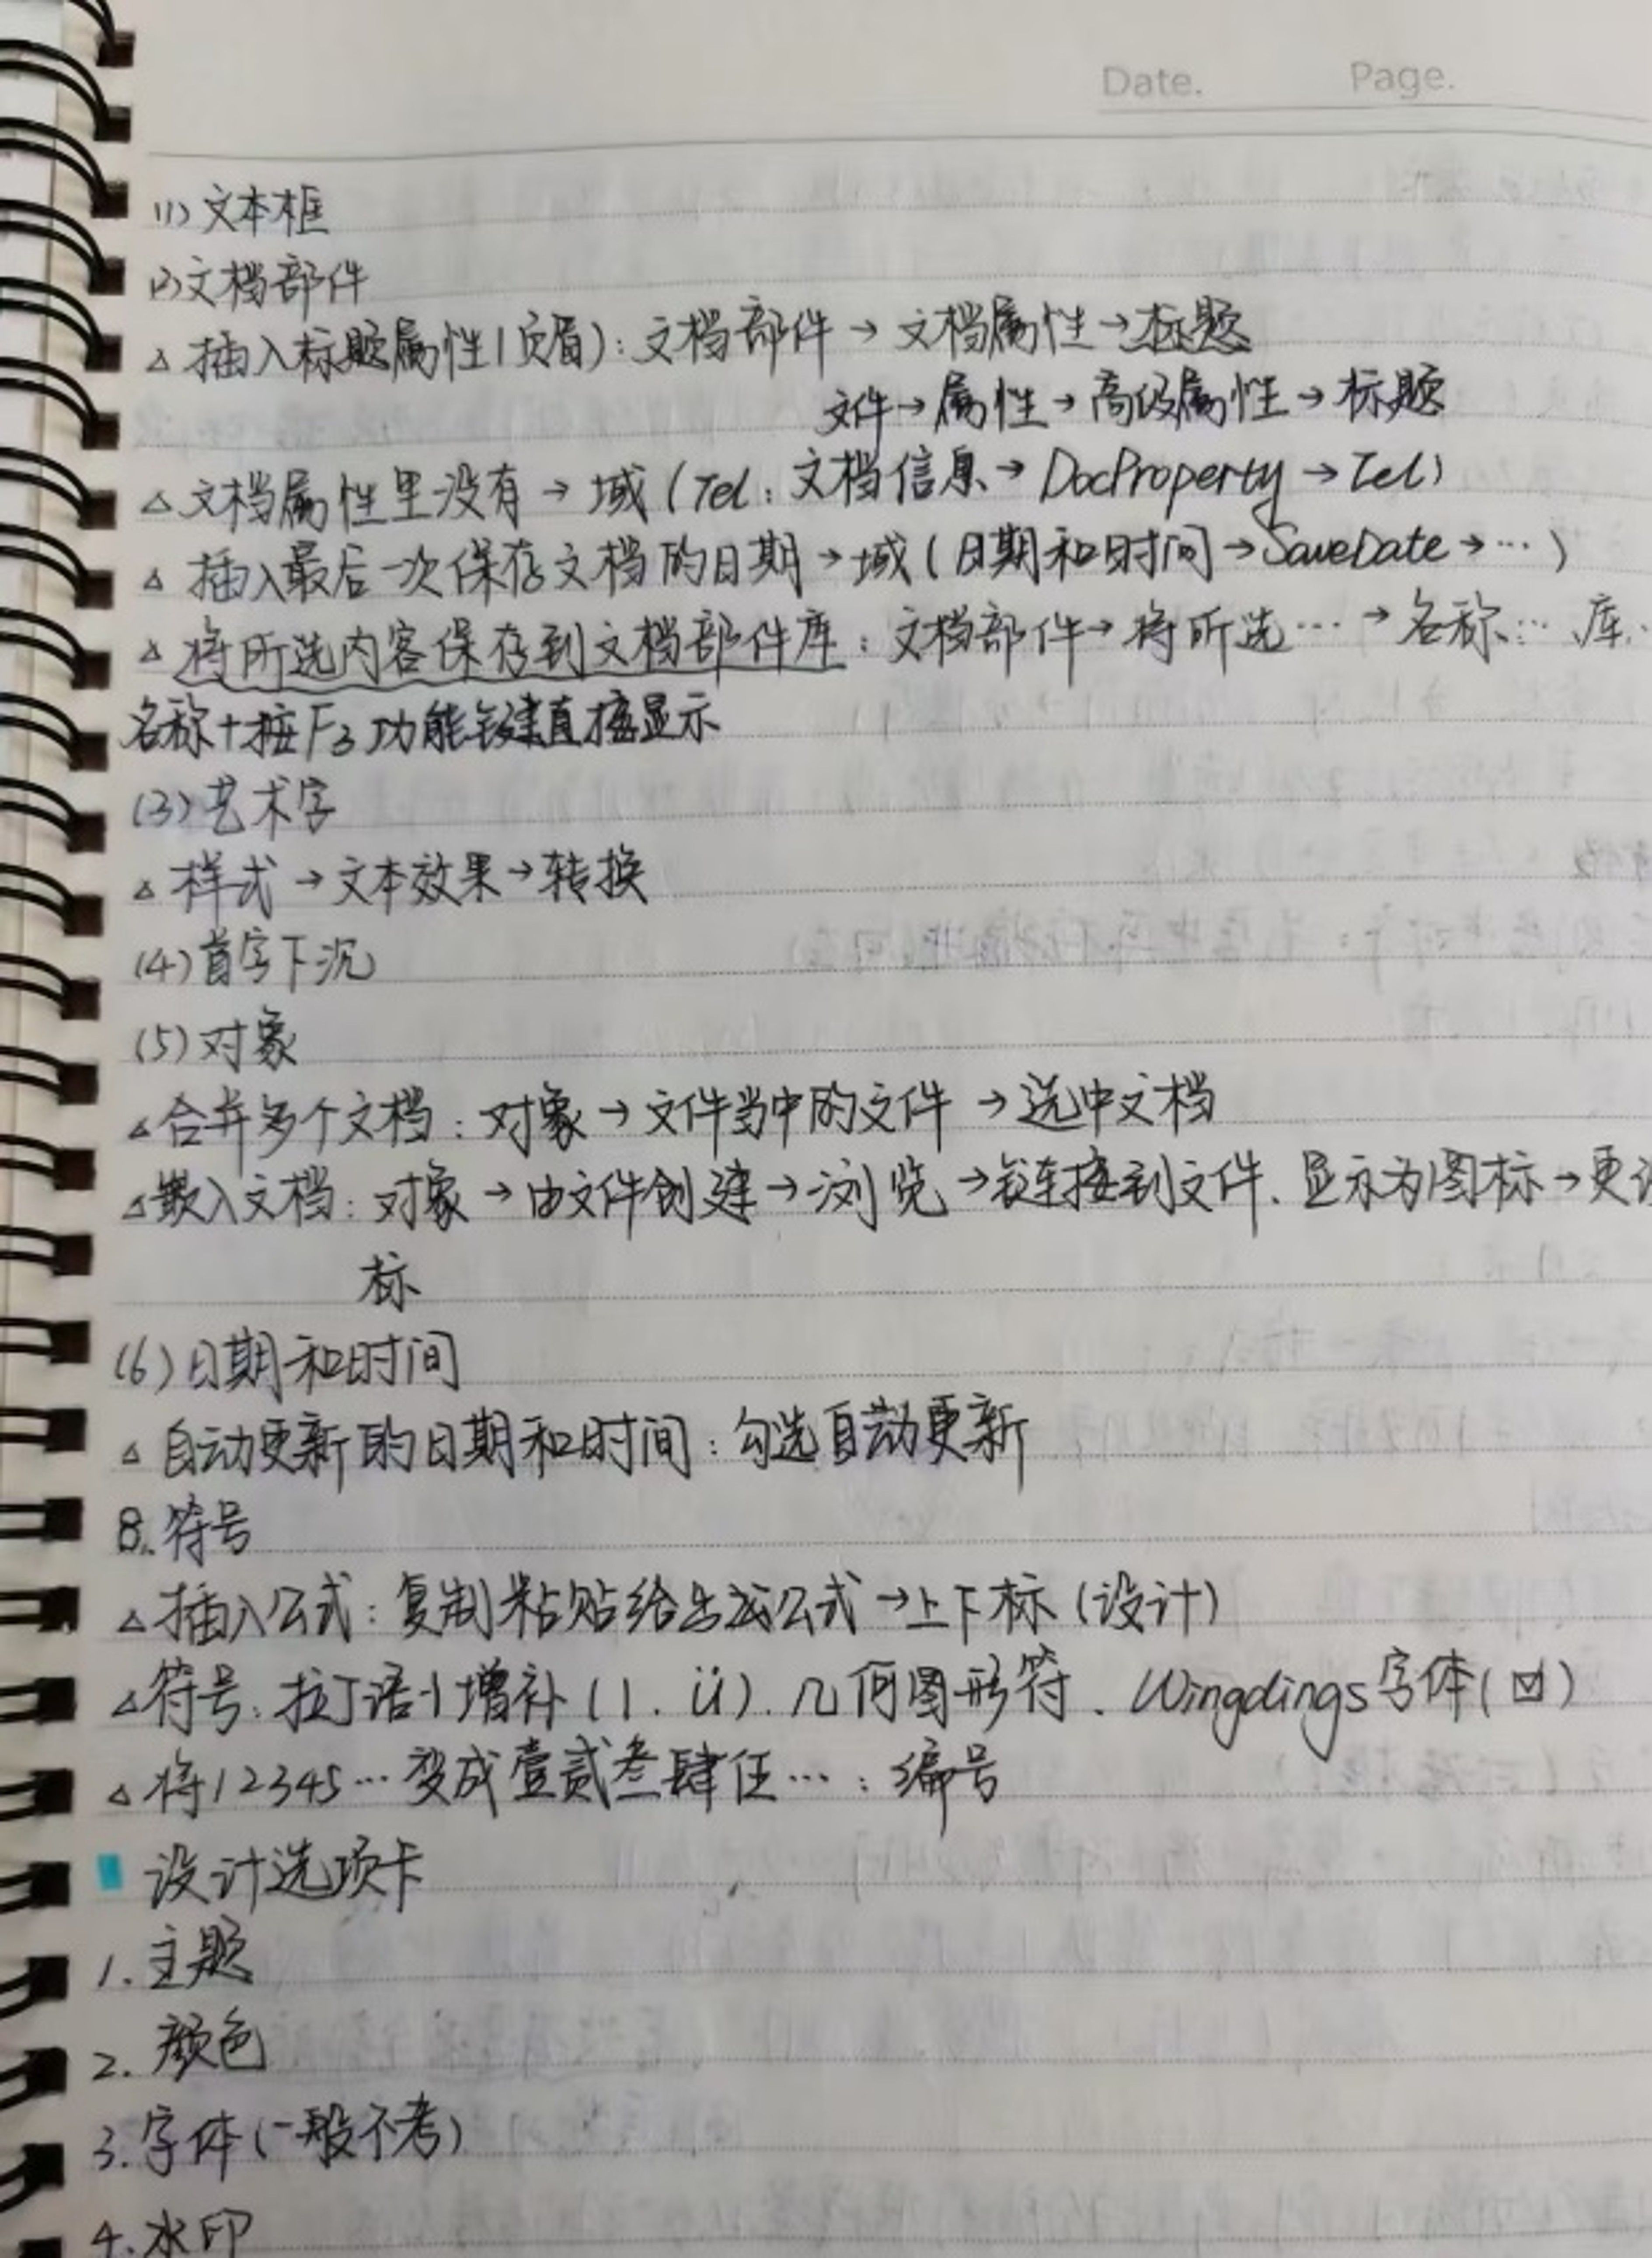 Date. Page.
(1) 文本框
(2) 文档部件
△ 插入标题属性(页眉):文档部件→文档属性→标题
文件→属性→高级属性→标题
△ 文档属性里没有→域(Tel:文档信息→DocProperty→Tel)
△ 插入最后一次保存文档的日期→域(日期和时间→SaveDate→…)
△ 将所选内容保存到文档部件库:文档部件→将所选…→名称… 库…
名称+按F3功能键直接显示
(3) 艺术字
△ 样式→文本效果→转换
(4) 首字下沉
(5) 对象
△ 合并多个文档:对象→文件当中的文件→选中文档
△ 嵌入文档:对象→由文件创建→浏览→链接到文件、显示为图标→更
标
(6) 日期和时间
△ 自动更新的日期和时间:勾选自动更新
8. 符号
△ 插入公式:复制粘贴给出或公式→上下标(设计)
△ 符号:拉丁语-1增补(), 几何图形符、Wingdings字体(☑)
△ 将12345…变成壹贰叁肆伍…:编号
设计选项卡
1. 主题
2. 颜色
3. 字体(一般不考)
4. 水印